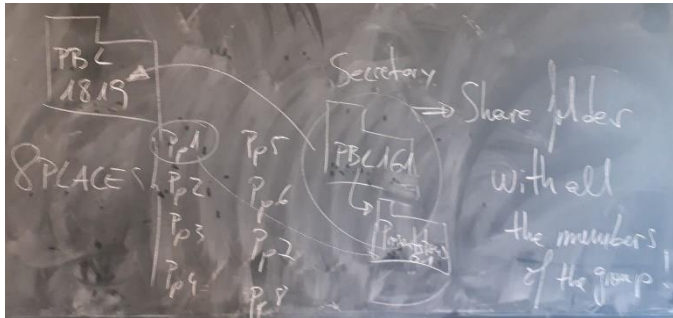 PBL
1819
8 PLACES
Pp1 Pp5
Pp2 Pp6
Pp3 Pp7
Pp4 Pp8
Secretary
PBL161
⇒ Share folder
with all
the members
of the group!